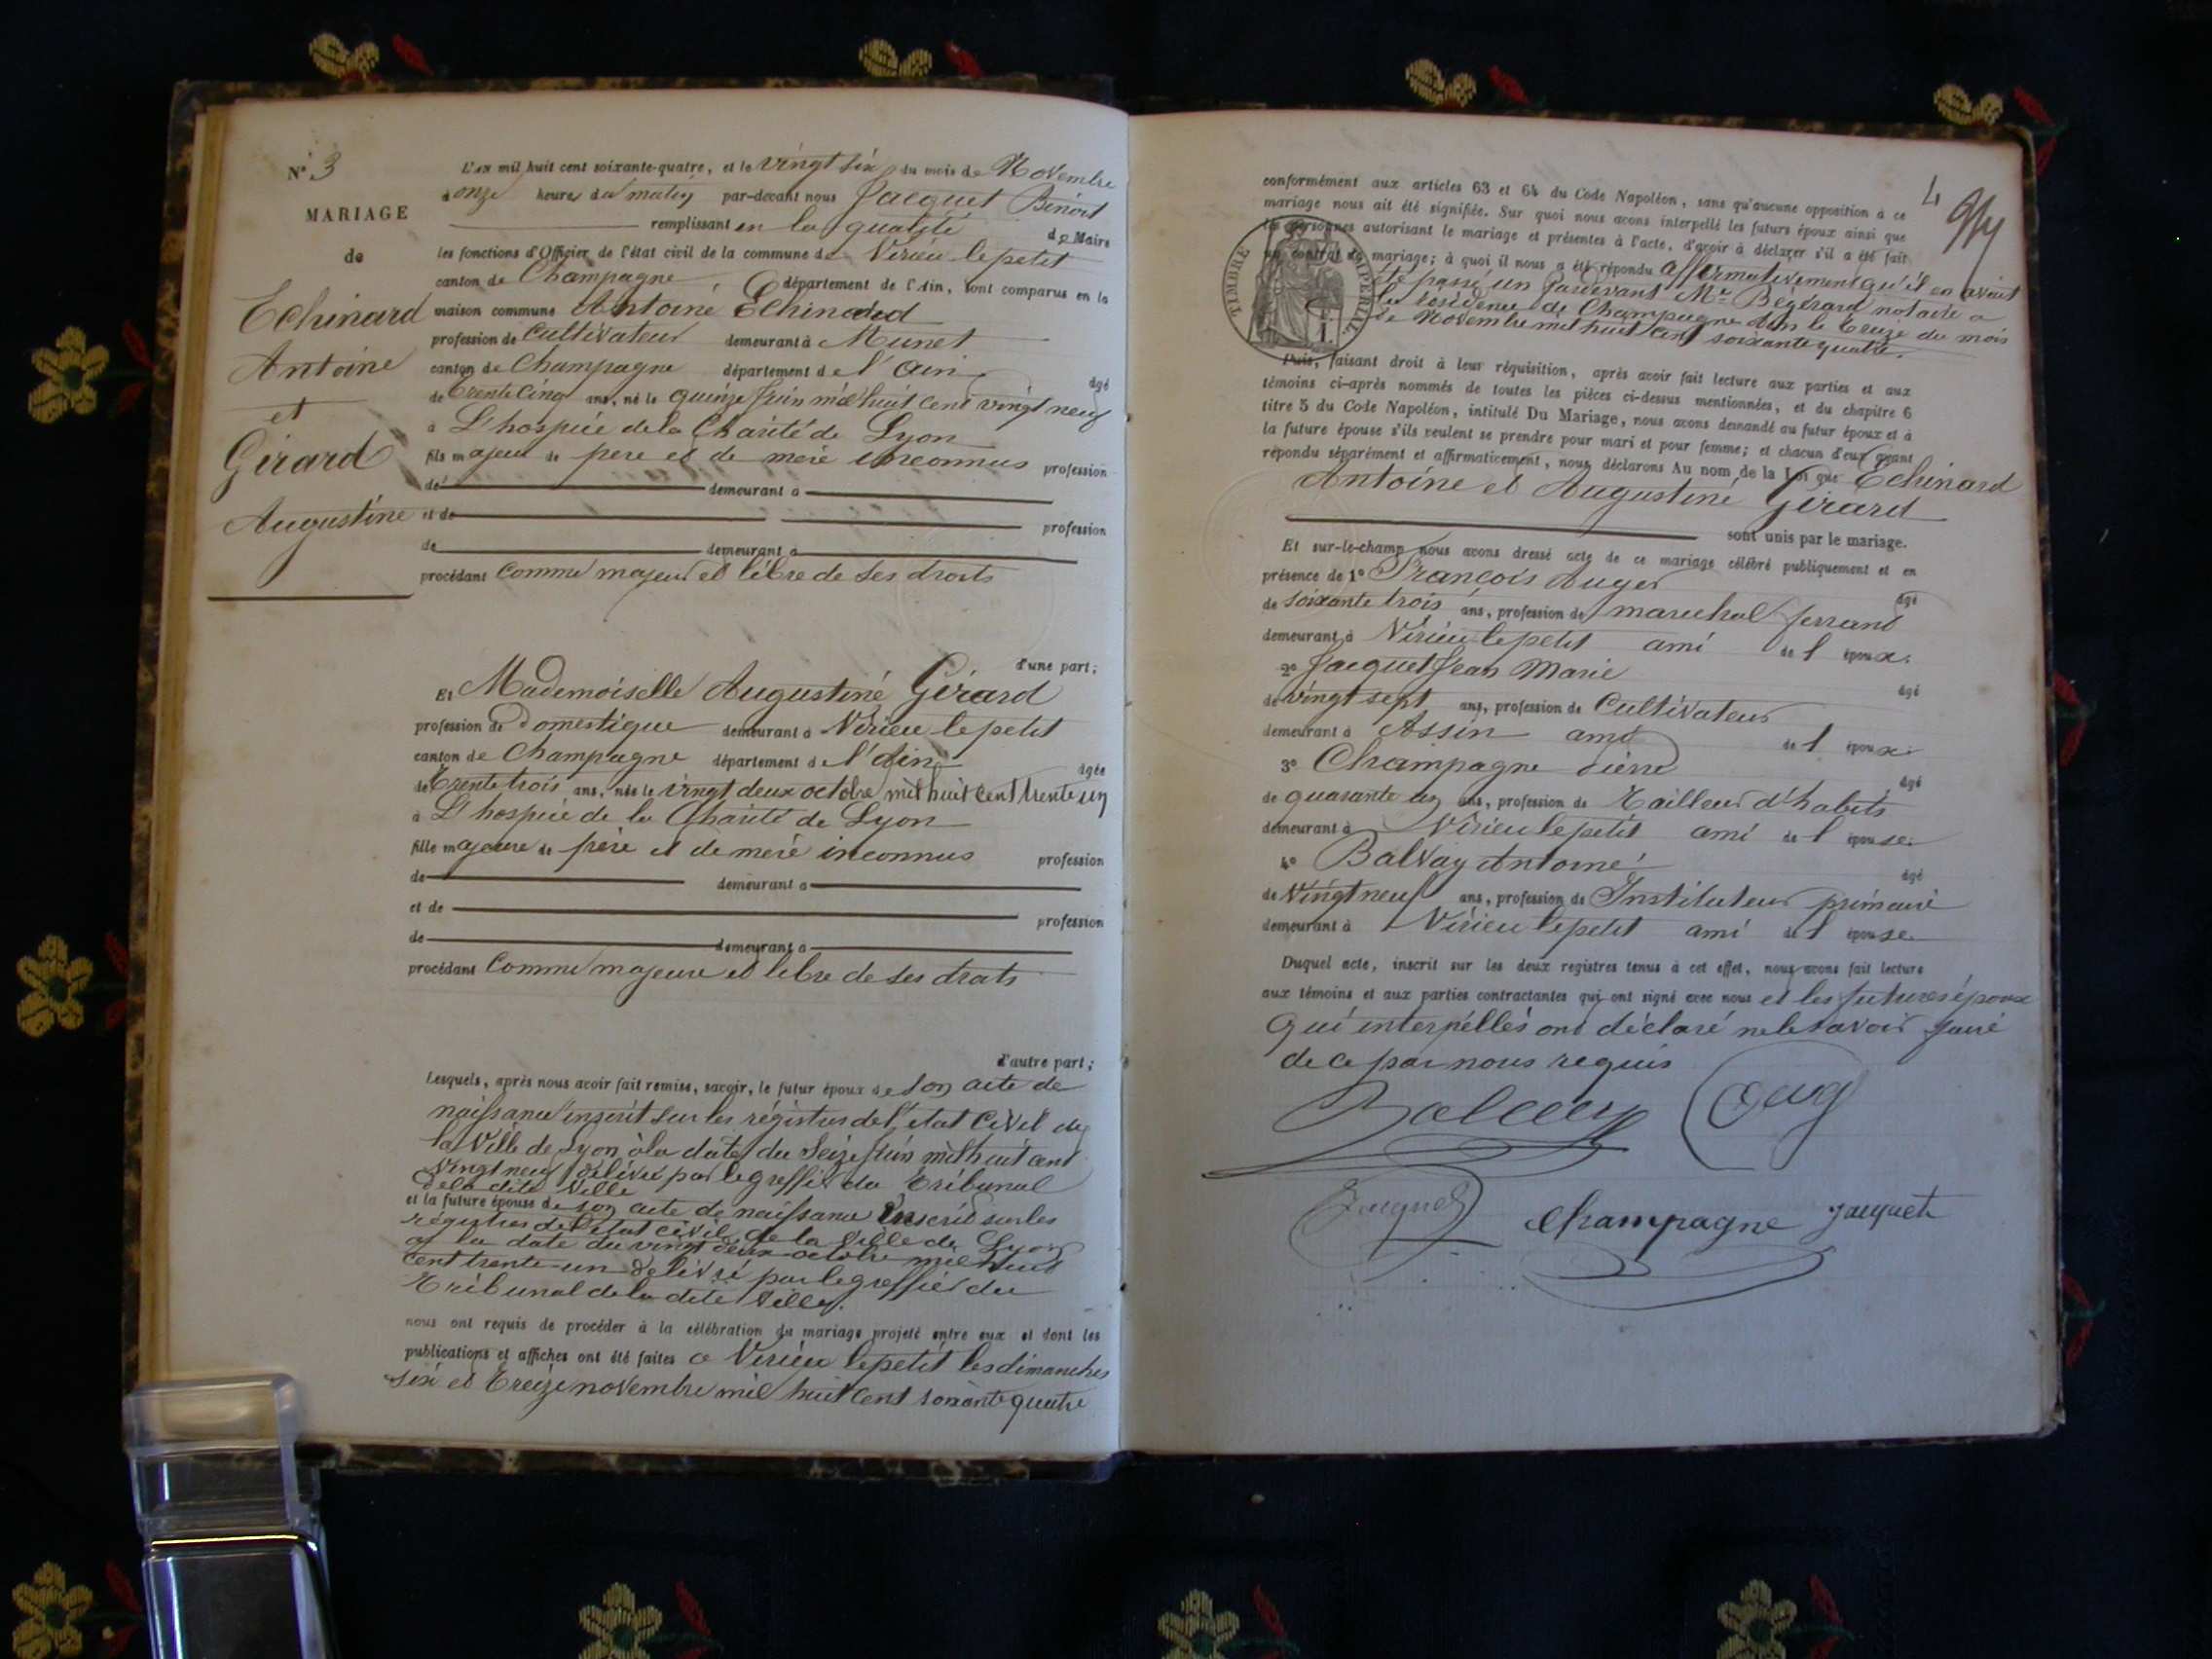 N° 3
MARIAGE
de
Echinard
Antoine
et
Girard
Augustine
L'an mil huit cent soixante-quatre, et le vingt six du mois de Novembre
à onze heures du matin par-devant nous Jacquet Benoit
remplissant en la qualité de Maire
les fonctions d'Officier de l'état civil de la commune de Virieu le petit
canton de Champagne département de l'Ain, sont comparus en la
maison commune Antoine Echinard
profession de Cultivateur demeurant à Munet
canton de Champagne département de l'ain âgé
de trente cinq ans, né le quinze Juin mil huit cent vingt neuf
à L'hospice de la Charité de Lyon
fils majeur de pere et de mere inconnus profession
de demeurant à
et de profession
de demeurant à
procédant comme majeur et libre de ses droits
d'une part;
Et Mademoiselle Augustine Girard
profession de Domestique demeurant à Virieu le petit
canton de Champagne département de l'ain âgée
de trente trois ans, née le vingt deux octobre mil huit cent trente un
à L'hospice de la Charité de Lyon
fille majeure de père et de mere inconnus profession
de demeurant à
et de profession
de demeurant à
procédant comme majeure et libre de ses droits
d'autre part;
Lesquels, après nous avoir fait remise, savoir, le futur époux de son acte de
naissance inscrit sur les régistres de l'état civil de
la Ville de Lyon à la date du seize Juin mil huit cent
vingt neuf délivré par le greffier du tribunal
de la dite Ville
et la future épouse de son acte de naissance inscrit sur les
régistres de l'état civil de la Ville de Lyon
à la date du vingt deux octobre mil huit
cent trente un délivré par le greffier du
tribunal de la dite Ville.
nous ont requis de procéder à la célébration du mariage projeté entre eux et dont les
publications et affiches ont été faites à Virieu le petit les dimanches
six et treize novembre mil huit cent soixante quatre
4
conformément aux articles 63 et 64 du Code Napoléon, sans qu'aucune opposition à ce
mariage nous ait été signifiée. Sur quoi nous avons interpellé les futurs époux ainsi que
les personnes autorisant le mariage et présentes à l'acte, d'avoir à déclarer s'il a été fait
un contrat de mariage; à quoi il nous a été répondu affirmativement qu'il en avait
été passé un pardevant Me Begerard notaire a
la résidence de Champagne Ain le treize du mois
de Novembre mil huit cent soixante quatre.
TIMBRE IMPERIAL
Puis, faisant droit à leur réquisition, après avoir fait lecture aux parties et aux
témoins ci-après nommés de toutes les pièces ci-dessus mentionnées, et du chapitre 6
titre 5 du Code Napoléon, intitulé Du Mariage, nous avons demandé au futur époux et à
la future épouse s'ils veulent se prendre pour mari et pour femme; et chacun d'eux ayant
répondu séparément et affirmativement, nous déclarons Au nom de la Loi que Echinard
Antoine et Augustine Girard
sont unis par le mariage.
Et sur-le-champ nous avons dressé acte de ce mariage célébré publiquement et en
présence de 1° François Auger âgé
de soixante trois ans, profession de marechal ferrand
demeurant à Virieu le petit ami de l'époux.
2° Jacquet Jean Marie âgé
de vingt sept ans, profession de Cultivateur
demeurant à Assin ami de l'époux.
3° Champagne Pierre âgé
de quarante un ans, profession de Tailleur d'habits
demeurant à Virieu le petit ami de l'épouse.
4° Balvay Antoine âgé
de Vingt neuf ans, profession de Instituteur primaire
demeurant à Virieu le petit ami de l'épouse.
Duquel acte, inscrit sur les deux registres tenus à cet effet, nous avons fait lecture
aux témoins et aux parties contractantes qui ont signé avec nous et les futures époux
qui interpellés ont déclaré ne le savoir faire
de ce par nous requis
Balvay
Jacquet Champagne Jacquet